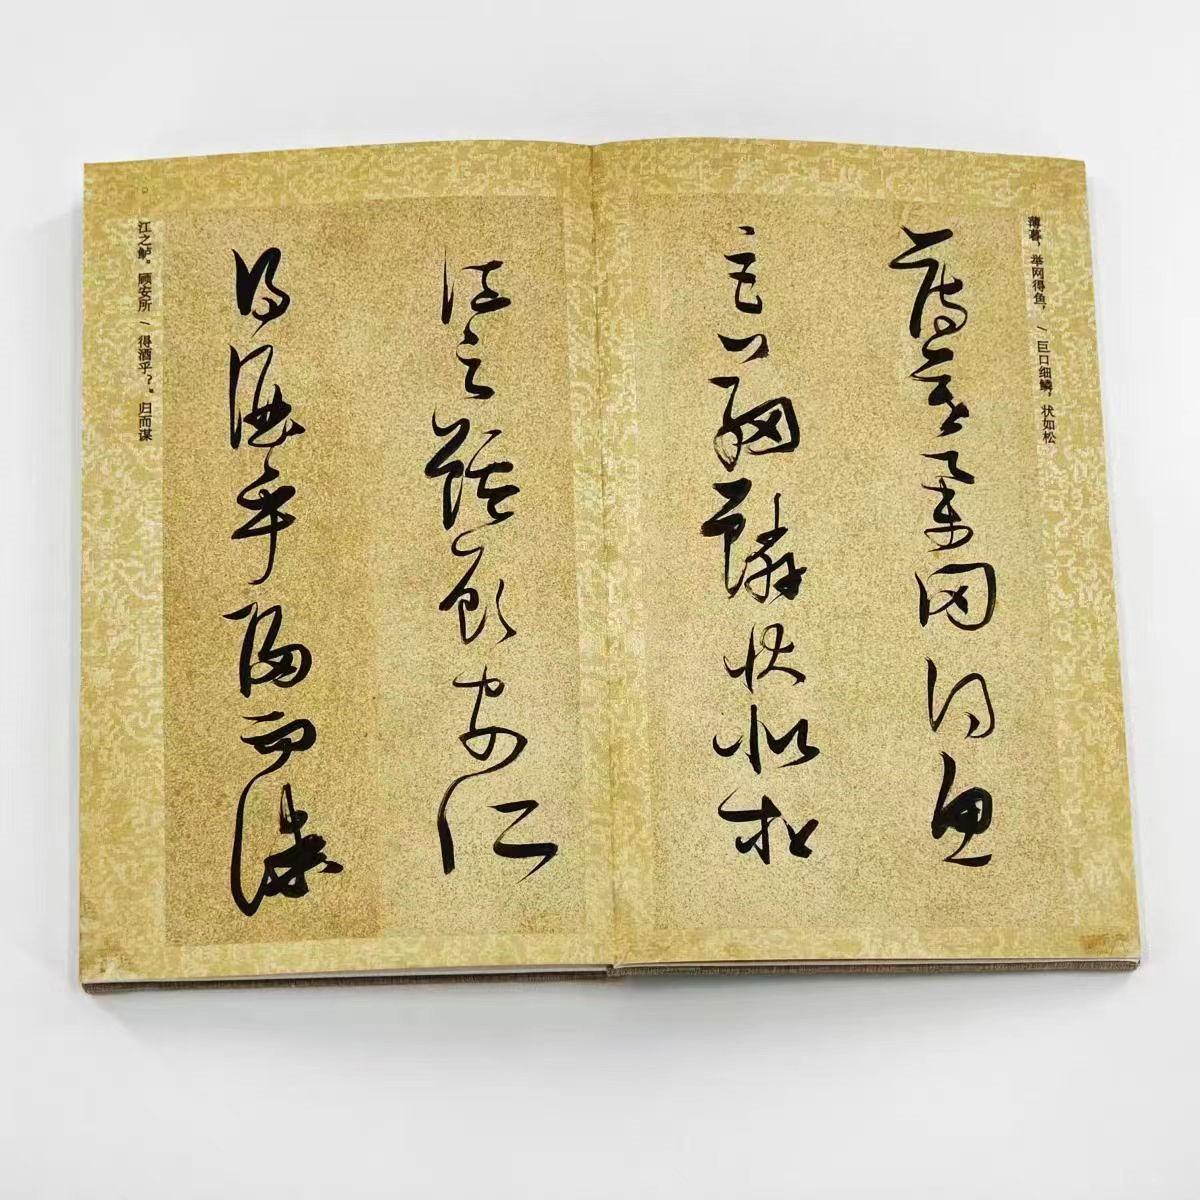 薄暮，举网得鱼，/巨口细鳞，状如松
薄暮舉网得魚
巨口細鱗狀似松
江之鱸顧安所
得酒乎歸而謀
江之鲈。顾安所/得酒乎？。归而谋